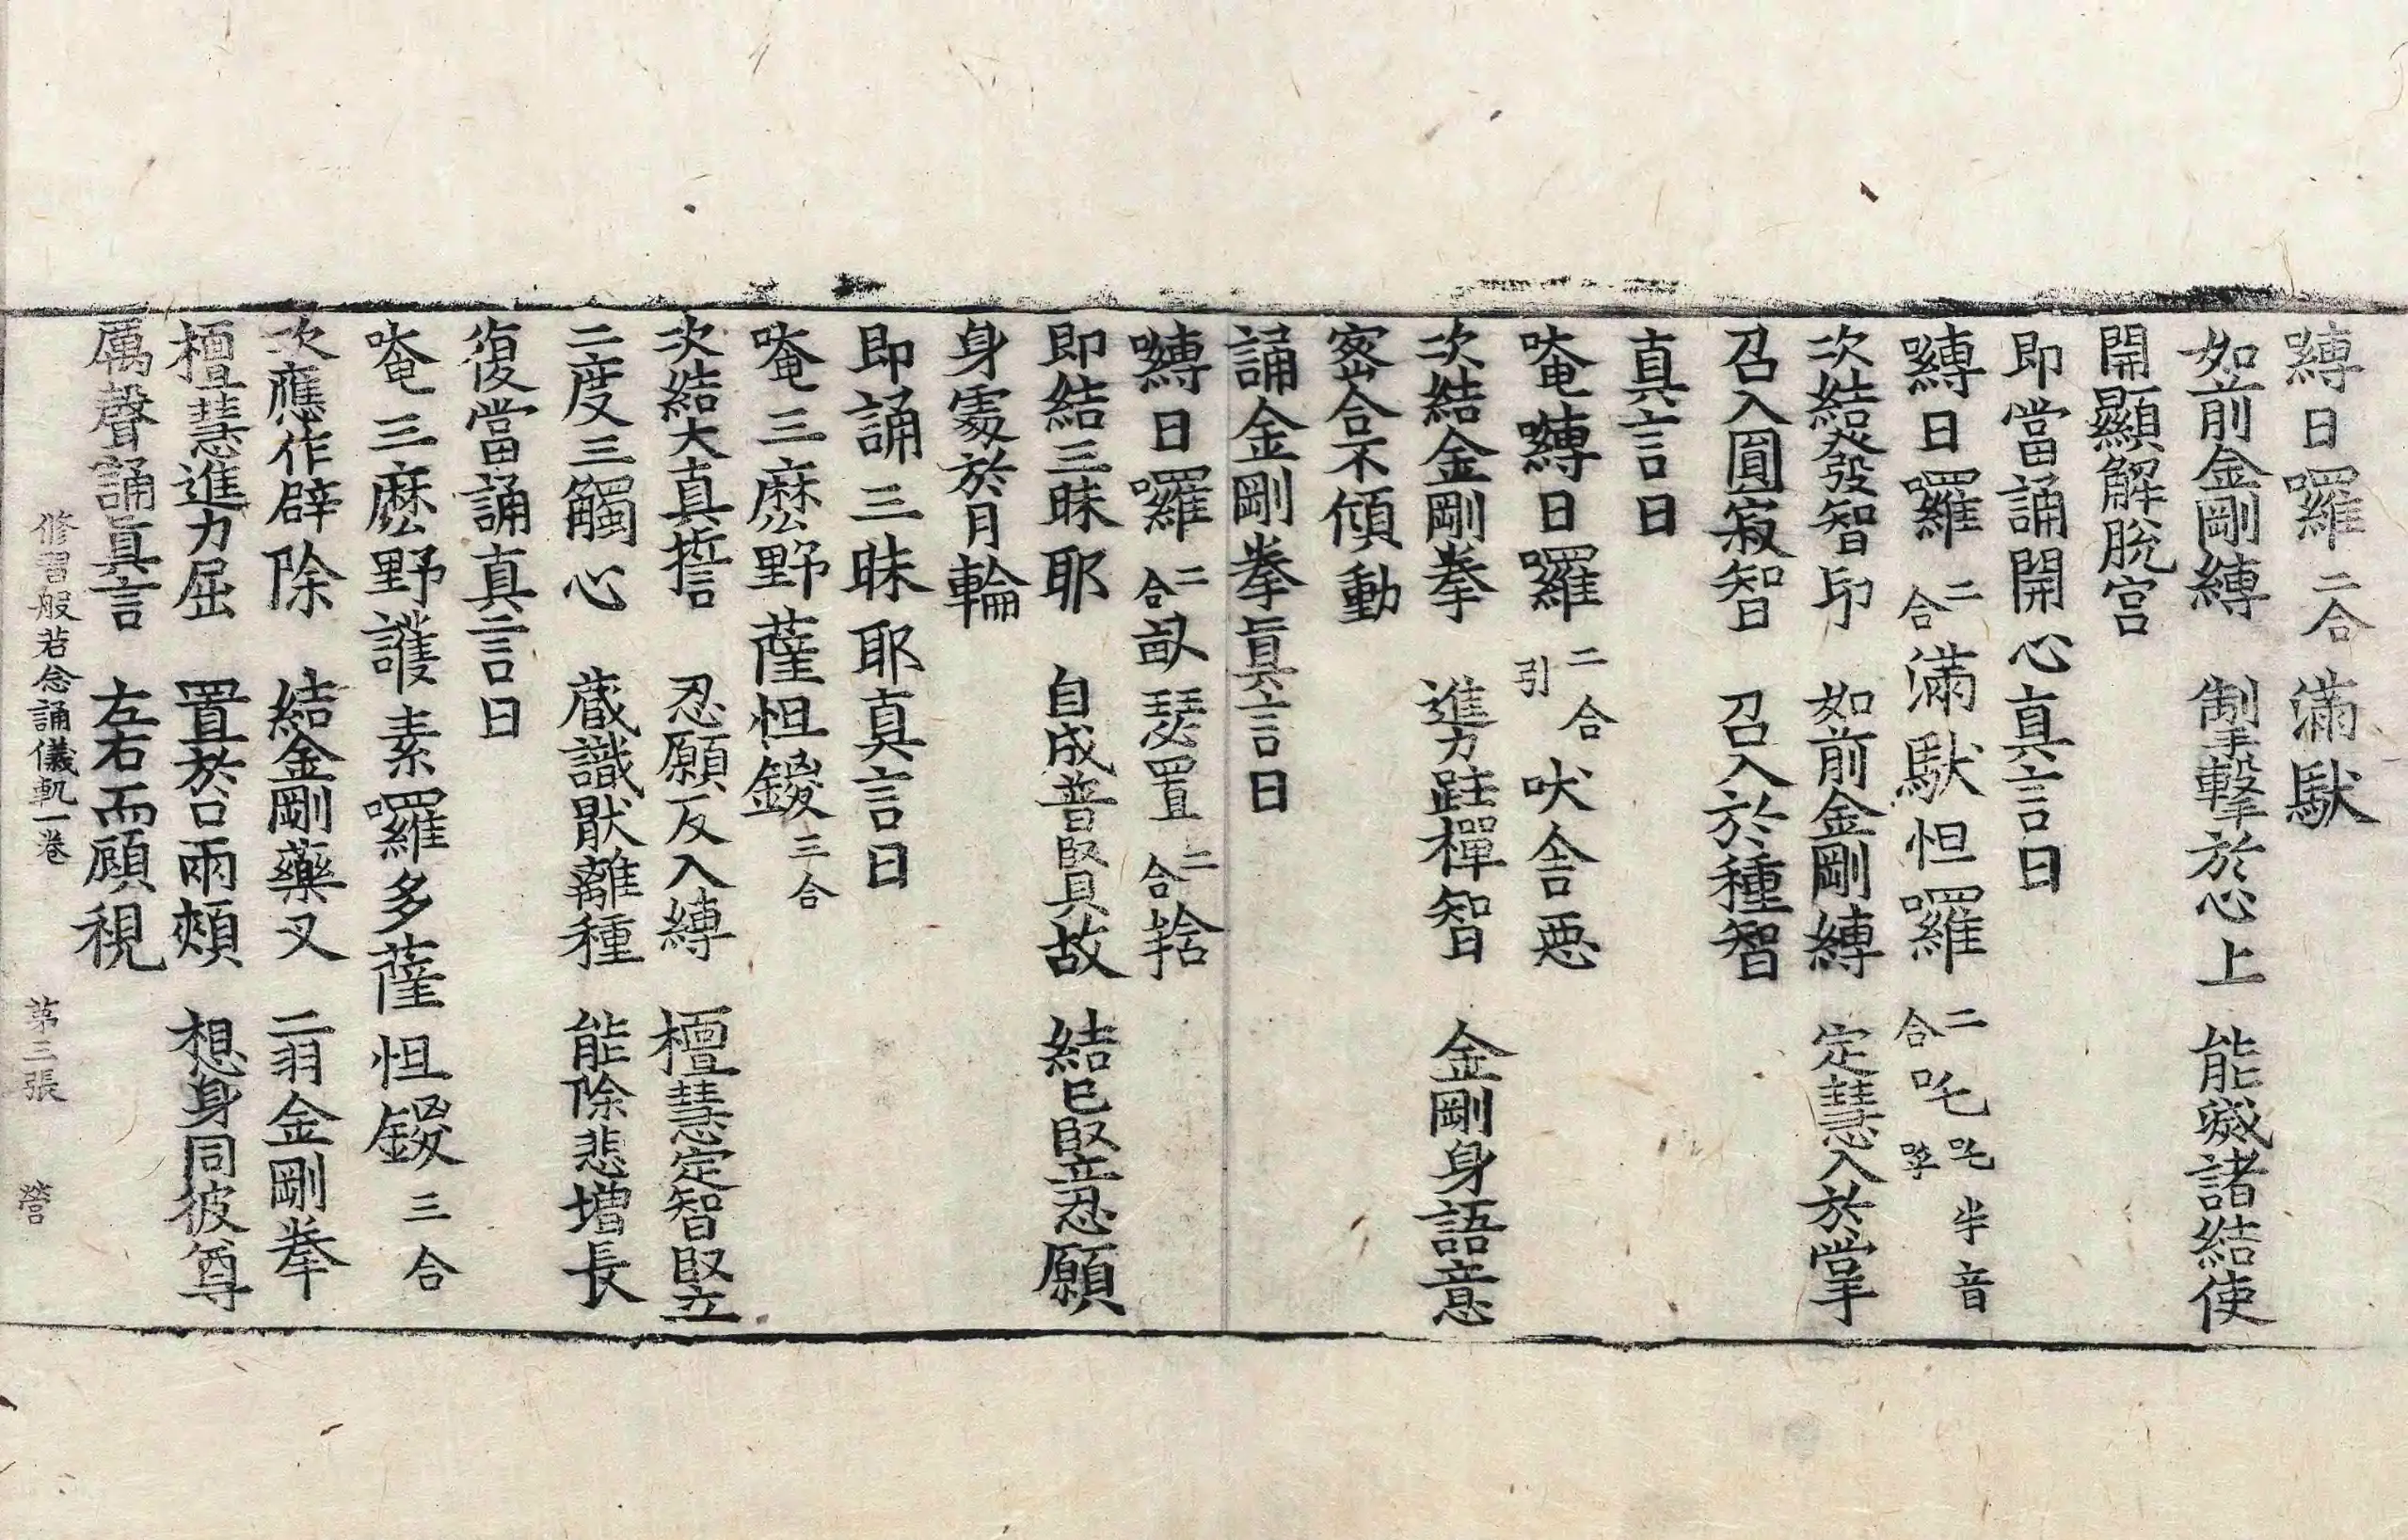 嚩日囉二合滿馱
如前金剛縛　掣擊於心上　能滅諸結使
開顯解脫宮
即當誦開心真言曰
嚩日囉二合滿馱怛囉二合吒吒半音呼
次結發智印　如前金剛縛　定慧入於掌
召入圓寂智　召入於種智
真言曰
唵嚩日囉二合引吠舍惡
次結金剛拳　進力跓禪智　金剛身語意
密合不傾動
誦金剛拳眞言曰
嚩日囉二合畝瑟置二合捨
即結三昧耶　自成普賢故　結已堅忍願
身處於月輪
即誦三昧耶真言曰
唵三麽野薩怛鑁三合
次結大真誓　忍願反入縛　檀慧定智堅立
二度三觸心　蔵識厭離種　能除悲增長
復當誦真言曰
唵三麽野護素囉多薩怛鑁三合
次應作辟除　結金剛藥叉　二羽金剛拳
檀慧進力屈　置於口兩頰　想身同彼尊
厲聲誦眞言　左右而顧視
修習般若念誦儀軌一卷　第三張　營